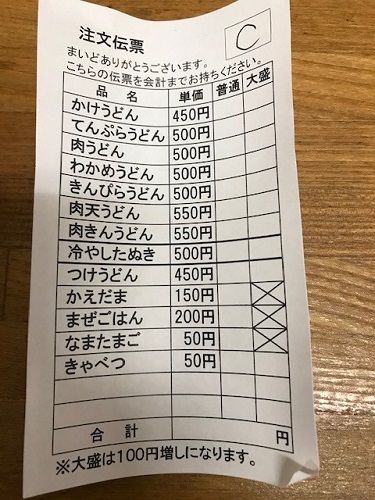 注文伝票
C
まいどありがとうございます。
こちらの伝票を会計までお持ちください。
品 名 単価 普通 大盛
かけうどん 450円
てんぷらうどん 500円
肉うどん 500円
わかめうどん 500円
きんぴらうどん 500円
肉天うどん 550円
肉きんうどん 550円
冷やしたぬき 500円
つけうどん 450円
かえだま 150円
まぜごはん 200円
なまたまご 50円
きゃべつ 50円
合 計 円
※大盛は100円増しになります。